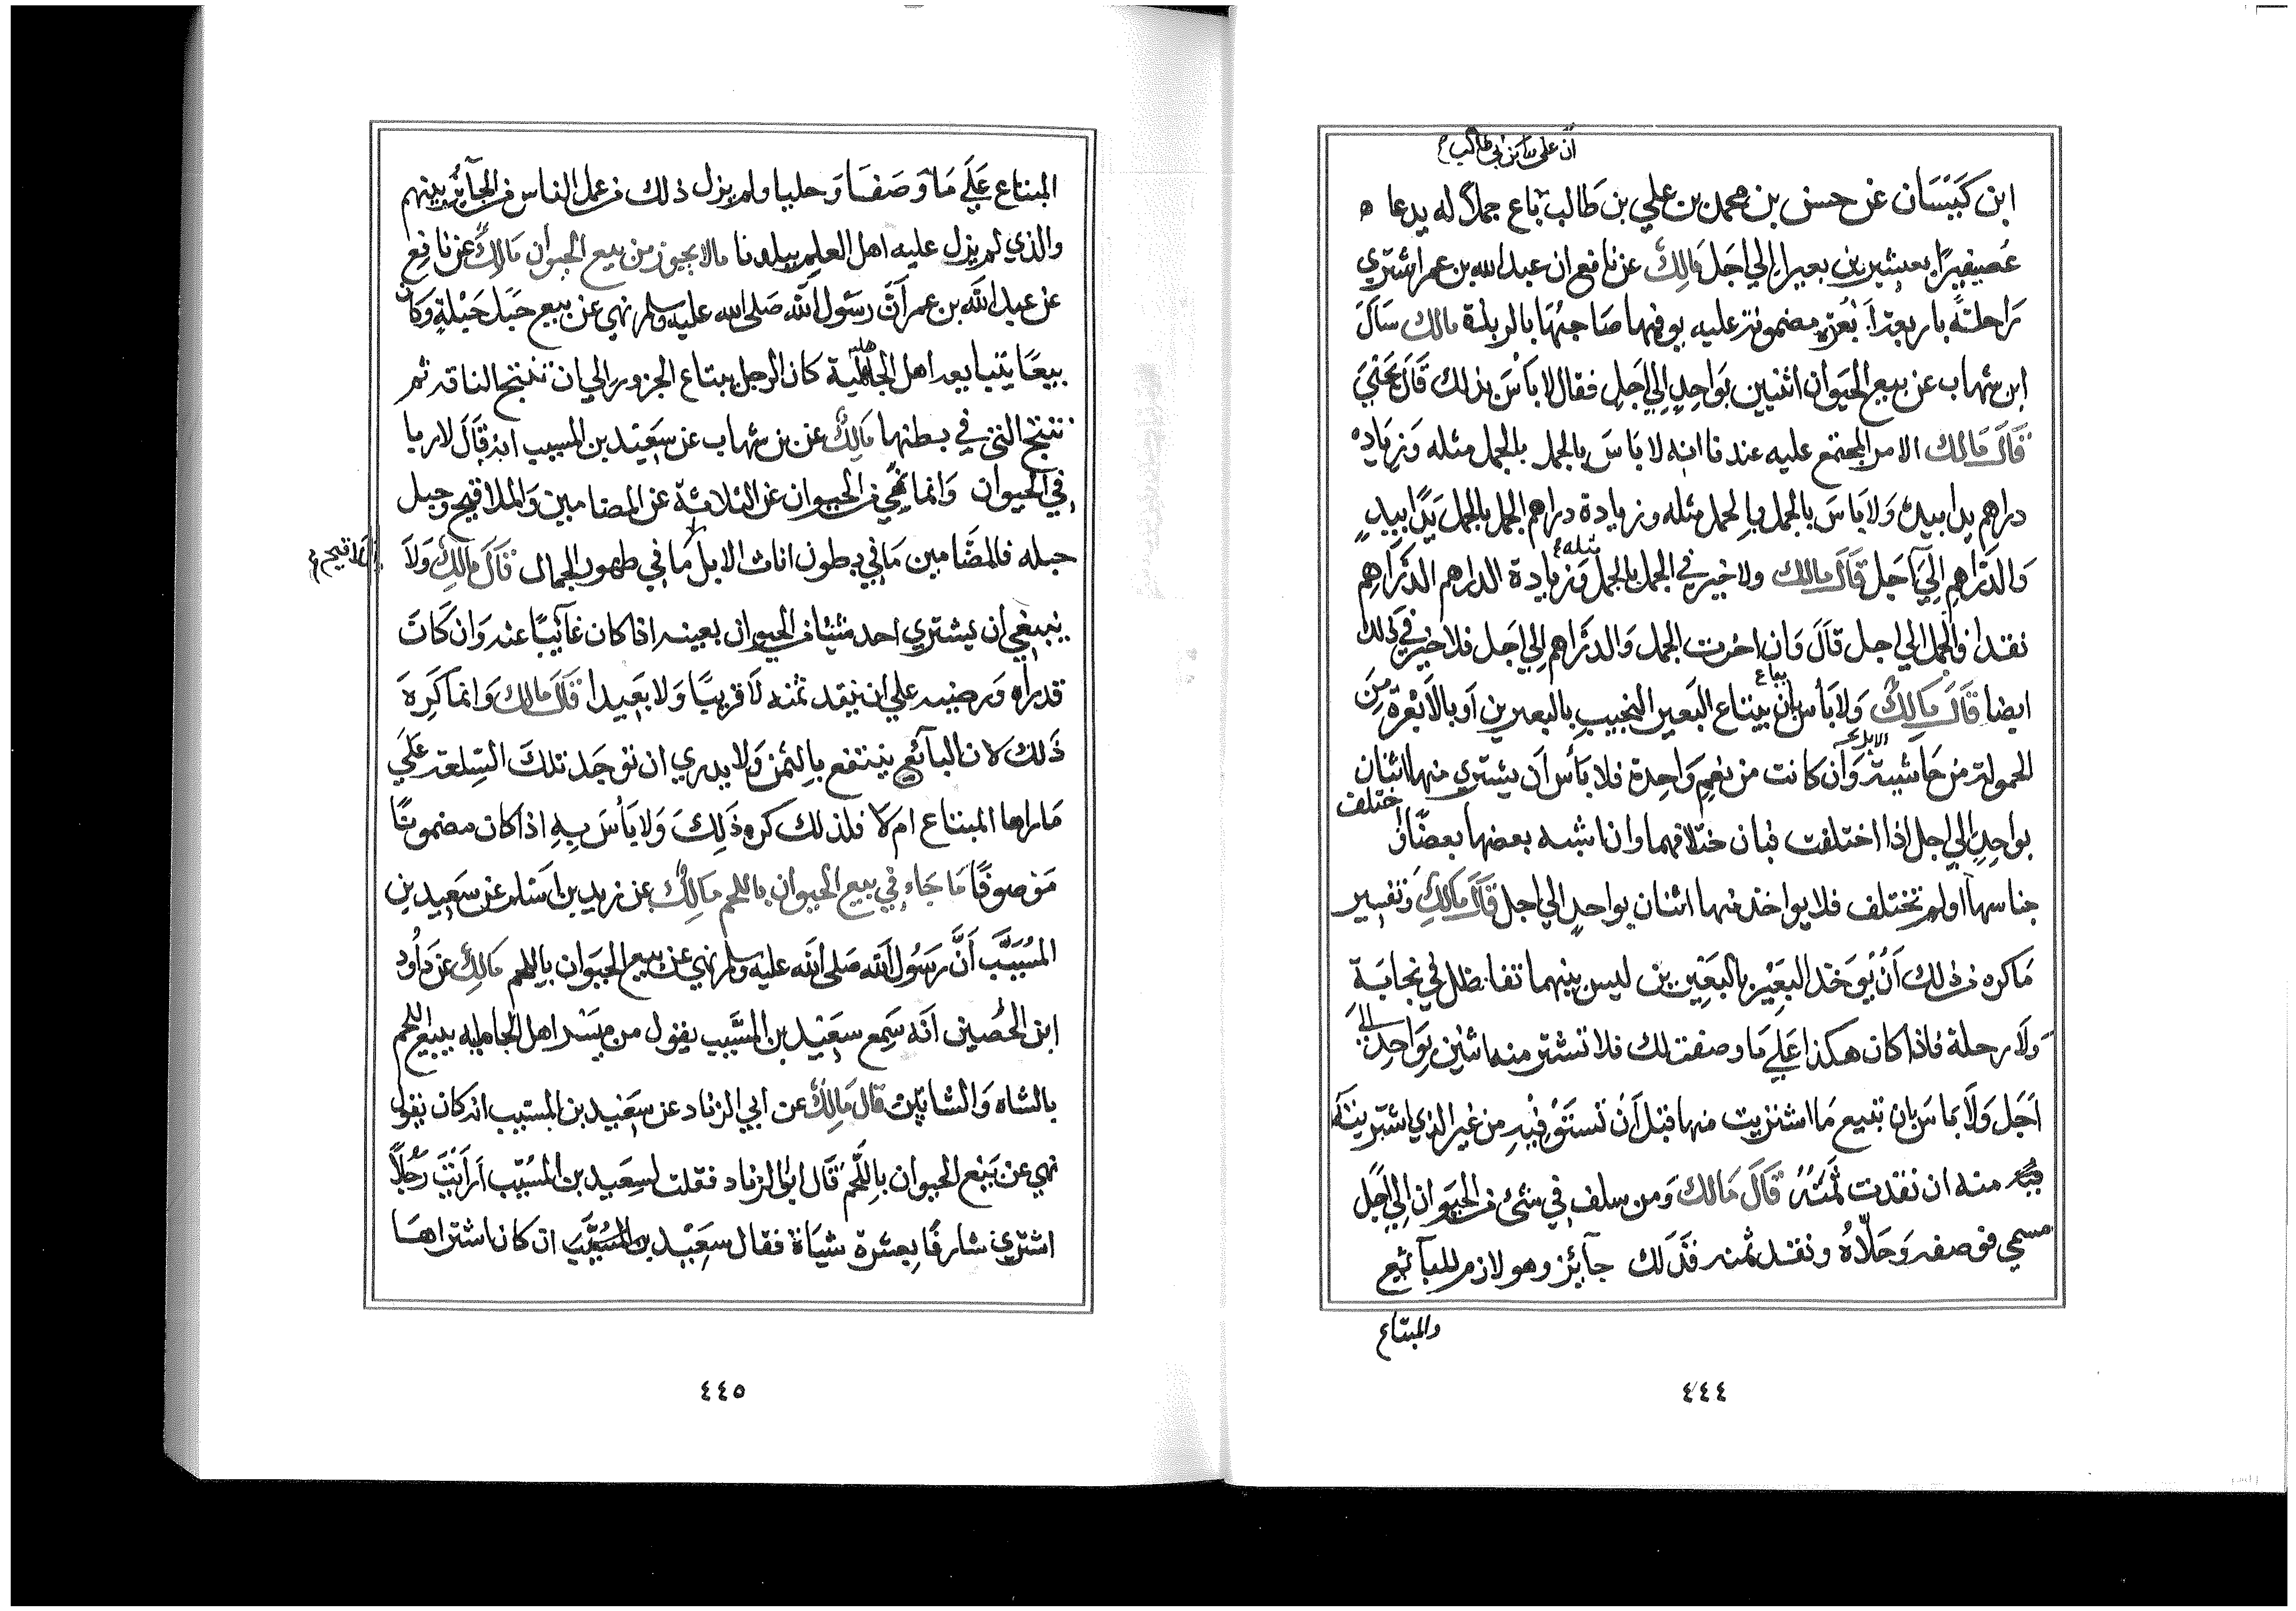 ان علي بن ابي طالب
ابن كَيْسَان عن حسن بن محمد بن علي بن طَالب باع جملًا له يدعا
عُصيفيرًا بعشرين بعيرا الي اجَل مَالِكُ عن نافع ان عبد الله بن عمر اشتري
رَاحلةً باربعة اَبْعُرة مضمونة عليه يوفيها صَاحبُهَا بالربذة مالك سَالَ
ابن شهاب عن بيع الحَيَوان اثنين بوَاحِدٍ اِلي اَجَلِ فقال لا بَاْسَ بذلك قَالَ يَحْيَيَ
قَالَ مَالك الامر المجتمع عليه عندنا انه لا بَاسَ بالجمل بالجمل مثله وَزيَادة
دراهم يدا بيد وَلا بَاسَ بالجمل بالجمل مثله وزيادة دراهم الجمل بالجمل يَدًا بيدٍ
وَالدّرَاهم اِلَيَ اَجل قَالَ مالك ولا خير في الجمل بالجمل مثله وَزيادة الدراهم الدَّرَاهِم
نقدا والجمل الي اجل قَالَ وَان اخرت الجمل وَالدّرَاهم اِلي اَجَل فلا خير في ذلك
ايضا قَالَ مَالِكُ وَلا بَأس ان يبتاع يباع البَعير النجيب بالبعيرين اَو بالاَبْعرة مِنَ
الحمولة من حَاشية الابل وَان كانت من نعمٍ وَاحِدة فلا بَأسَ اَن يشتري منها اثنان
بواحِدٍ اِلي اجل اذا اختلفت فبان ختلافهما وان اشبه بعضها بعضًا و اختلف
جناسها اَولم تختلف فلا يواخذ منها اثنان بواحدٍ الي اجل قَالَ مَالِكِ وَتفسير
مَا كره من ذلك اَنْ يُوَخَذ البَعِيْر بالبَعْيرين ليس بينهما تفاظل في نجَابَةِ
وَلَا رحلة فاذا كان هكذا عَلي مَا وصفت لك فلا تشتر منه اثنين بوَاحِدٍ الي
اَجَل وَلَا بَاسَ بان تبيع مَا اشتريت منها قبل اَنْ تَستَوْفيهِ من غير الذي اشتريته
منه ان نقدت ثمَنَهُ قَالَ مَالك وَمن سلف في شئ من الحيَوان اِلي اَجَل
مسمي فوصفه وَحَلّاهُ ونقد ثمنه فَذَلك جآئز وهو لازم للبآئع
والمبتاع
٤٤٤
المبتاع عَلَي مَا وَصَفَا وَحليا ولم يزل ذلك من عمل الناس من الجآئز بينهم
والذي لم يزل عليه اهل العلم ببلدنا مالا يجوز من بيع الحيوان مَالِكُ عن نافع
عن عبد الله بن عمر اَنَّ رَسُول الله صَلي الله عليه وسلم نهي عن بيع حَبَل حَبْلةٍ وَكان
بيعًا يَتبايعه اهل الجاهلية كان الرجل يبتاع الجزور الي ان تنتج الناقة ثم
تنتج التي في بطنها مَالِكُ عن بن شهاب عن سَعَيْد بن المسيب انه قَالَ لا ربا
في الحيوان وَانما نُهي من الحيوان عن الثلاثة عن المضامين وَالملاقيح وحبل
حبله فالمضَامين مَا في بطون اناث الابل والملاقيح مَا في ظهور الجمال قَالَ مَالِكُ وَلَا
ينبغي ان يشتري احد شيئا من الحيوان بعينه اذا كان غآئبًا عنه وَان كَانَ
قد رآه وَرضيه علي ان ينقد ثمنه لَا قريبًا وَلا بَعيدا قَالَ مالك وَانما كَرِهَ
ذَلك لان البآئع ينتفع بالثمن وَلا يدري ان توجد تلك السّلعة عَلَي
مَا راها المبتاع ام لَا فلذلك كره ذَلِكَ وَلا بَأسَ بِهِ اذا كان مضمونًا
مَوصوفًا مَا جَاء في بيع الحيوان باللحم مَالِكُ عن زيد بن اَسلم عن سَعِيد بن
المُسَيَّب اَنَّ رَسُول الله صَلي الله عليه وسلم نهي عن بيع الحيَوان باللحم مَالِكُ عن دَاوُد
ابن الحُصين اَنَه سَمِع سعَيْد بن المسَّيب يقول من ميَسْر اهل الجاهليه بيع اللحم
بالشاه وَالشاتين قال مَالِكُ عن ابي الزناد عن سَعَيْد بن المسيب انه كان يقول
نهي عن بَيْع الحيوان باللّحم قَال ابُو الزناد فقلت لسعَيد بن المسُيّب اَرَاَيْتَ رَجُلاً
اشتري شارفًا بعشرة شيَاة فقال سعَيْد بن المسُيَّب ان كان اشتراهَا
٤٤٥